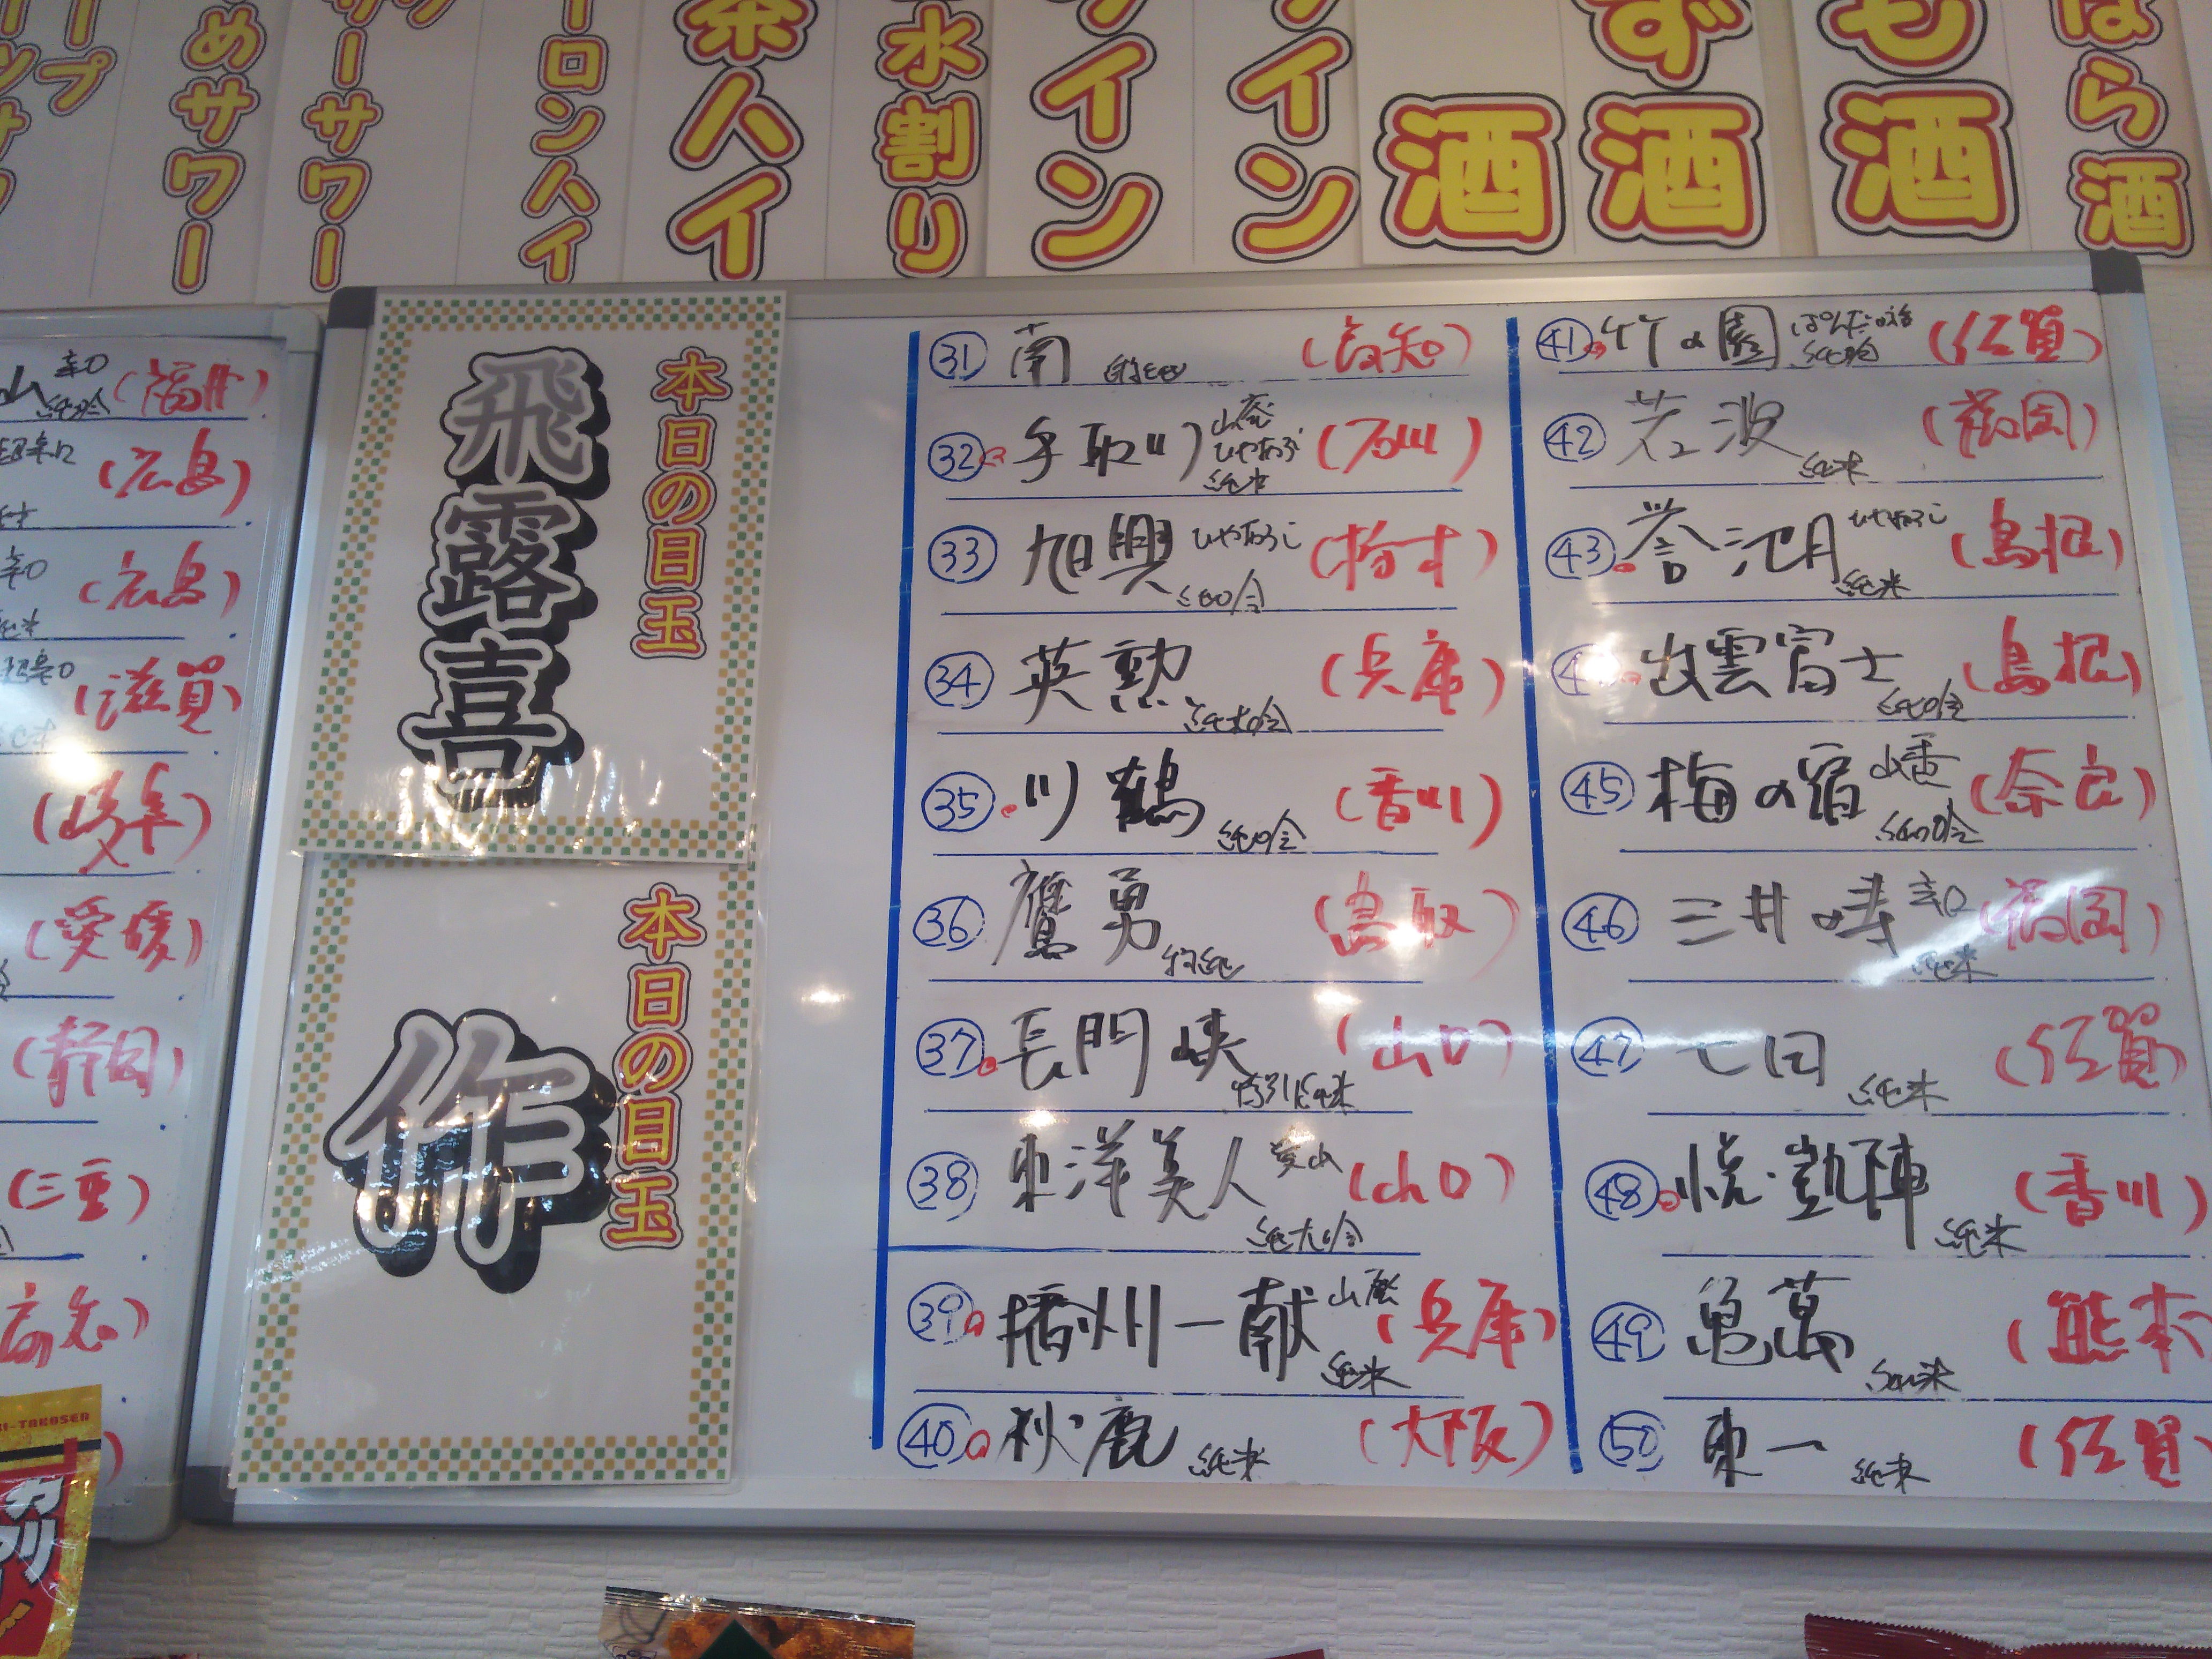 めサワー
ーサワー
ーロンハイ
茶ハイ
水割り
イン
イン
酒
ず酒
も酒
ばら酒
山 辛口 (福井)
純吟
超辛口 (広島)
辛口 (広島)
超辛口 (滋賀)
(岐阜)
(愛媛)
(静岡)
(三重)
(高知)
本日の目玉
飛露喜
本日の目玉
作
31 南 (高知)
32 手取川 山廃 ひやおろし 純米 (石川)
33 旭興 ひやおろし 純吟 (栃木)
34 英勲 純大吟 (兵庫)
35 川鶴 純吟 (香川)
36 鷹勇 特純 (鳥取)
37 長門峡 特別純米 (山口)
38 東洋美人 純大吟 (山口)
39 播州一献 山廃 純米 (兵庫)
40 秋鹿 純米 (大阪)
41 竹の園 純吟 (佐賀)
42 若波 純米 (福岡)
43 誉池月 ひやおろし 純米 (島根)
4 出雲富士 純吟 (島根)
45 梅の宿 山廃 純吟 (奈良)
46 三井の寿 辛口 純米 (福岡)
47 七田 純米 (佐賀)
48 悦凱陣 純米 (香川)
49 亀萬 純米 (熊本
50 東一 純米 (佐賀
KI-TAKOSEN
カリ